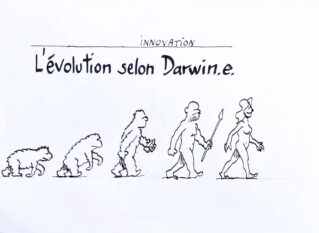 INNOVATION
L'évolution selon Darwin.e.